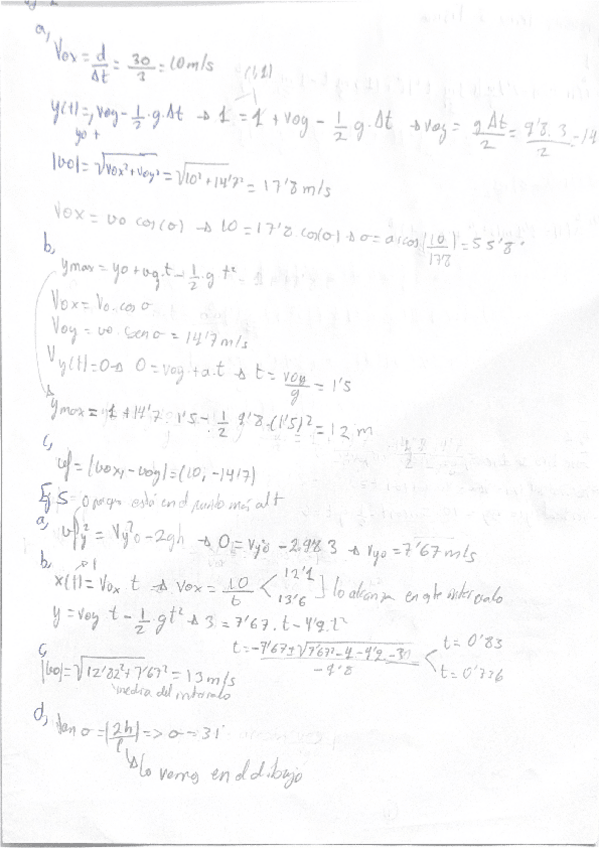 a,
Vox = d/Δt = 30/3 = 10 m/s
(1,1)
y(t) = y0 + voy - 1/2 · g · Δt → 1 = 1 + voy - 1/2 g · Δt → voy = gΔt/2 = 9'8 · 3/2 = 14
|vo| = √(vox² + voy²) = √(10² + 14'7²) = 17'8 m/s
vox = vo cos(σ) → 10 = 17'8 cos(σ) → σ = arcos(10/178) = 55'8°
b,
ymax = yo + voy · t - 1/2 · g t²
Vox = Vo · cos σ
Voy = vo · sen σ = 14'7 m/s
Vy(t) = 0 → 0 = voy + a · t → t = voy/g = 1'5
ymax = 1 + 14'7 · 1'5 - 1/2 9'8 · (1'5)² = 12 m
c,
vf = |vox, -voy| = (10, -14'7)
Ej 5 = 0 porque está en el punto más alt
a, vfy² = Vy²o - 2gh → 0 = vyo² - 2 · 9'8 · 3 → vyo = 7'67 m/s
b,
x(t) = Vox t → vox = 10/t < 12'1 13'6 ] lo alcanza en este intervalo
y = voy t - 1/2 g t² → 3 = 7'67 · t - 4'9 · t²
t = -7'67 ± √(7'67² - 4 · -4'9 · -3)/-9'8 < t = 0'83 t = 0'736
c,
|vo| = √(12'82² + 7'67²) = 13 m/s
media del intervalo
d, tan σ = |2h/l| => σ = 31°
lo verás en el dibujo